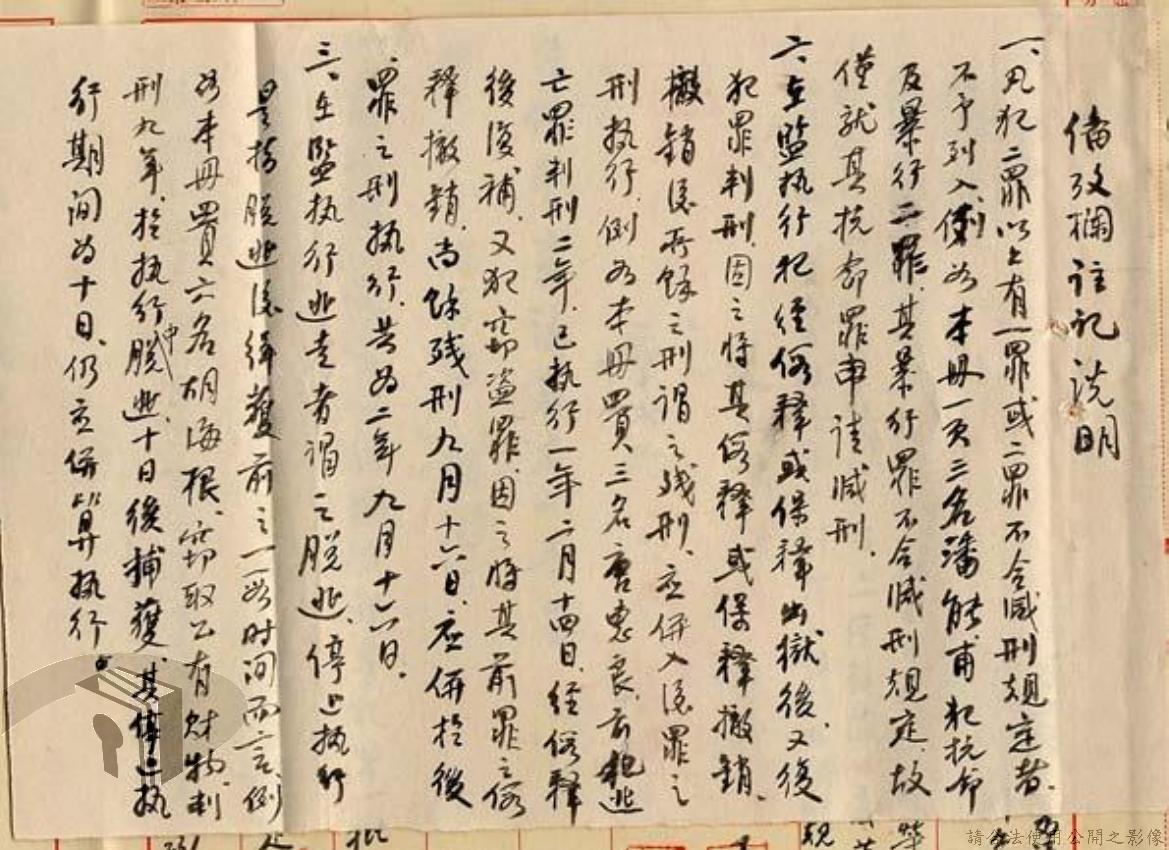 備攷欄註記說明
一、凡犯二罪以上有一罪或二罪不合減刑規定者、
不予列入、例如本冊一頁三名潘能甫犯抗命
及暴行二罪、其暴行罪不合減刑規定、故
僅就其抗命罪申請減刑、
二、在監執行犯經假釋或保釋出獄後、又復
犯罪判刑、因之將其假釋或保釋撤銷、
撤銷後所餘之刑謂之残刑、应併入後罪之
刑执行、例如本冊四頁三名唐惠良、前犯逃
亡罪判刑二年、已执行一年二月十四日、経假釋
後復補、又犯竊盜罪、因之將其前罪之假
釋撤銷、尚餘残刑九月十六日、应併於後
罪之刑执行、共为二年九月十六日、
三、在監执行逃走者謂之脱逃、停止执行
是指脱逃後緝獲前之一段时间而言、例
如本冊四頁六名胡海根、竊取公有財物、判
刑九年、於执行中脱逃、十日後捕獲、其停止执
行期间为十日、仍应併算执行。
請合法使用公開之影像